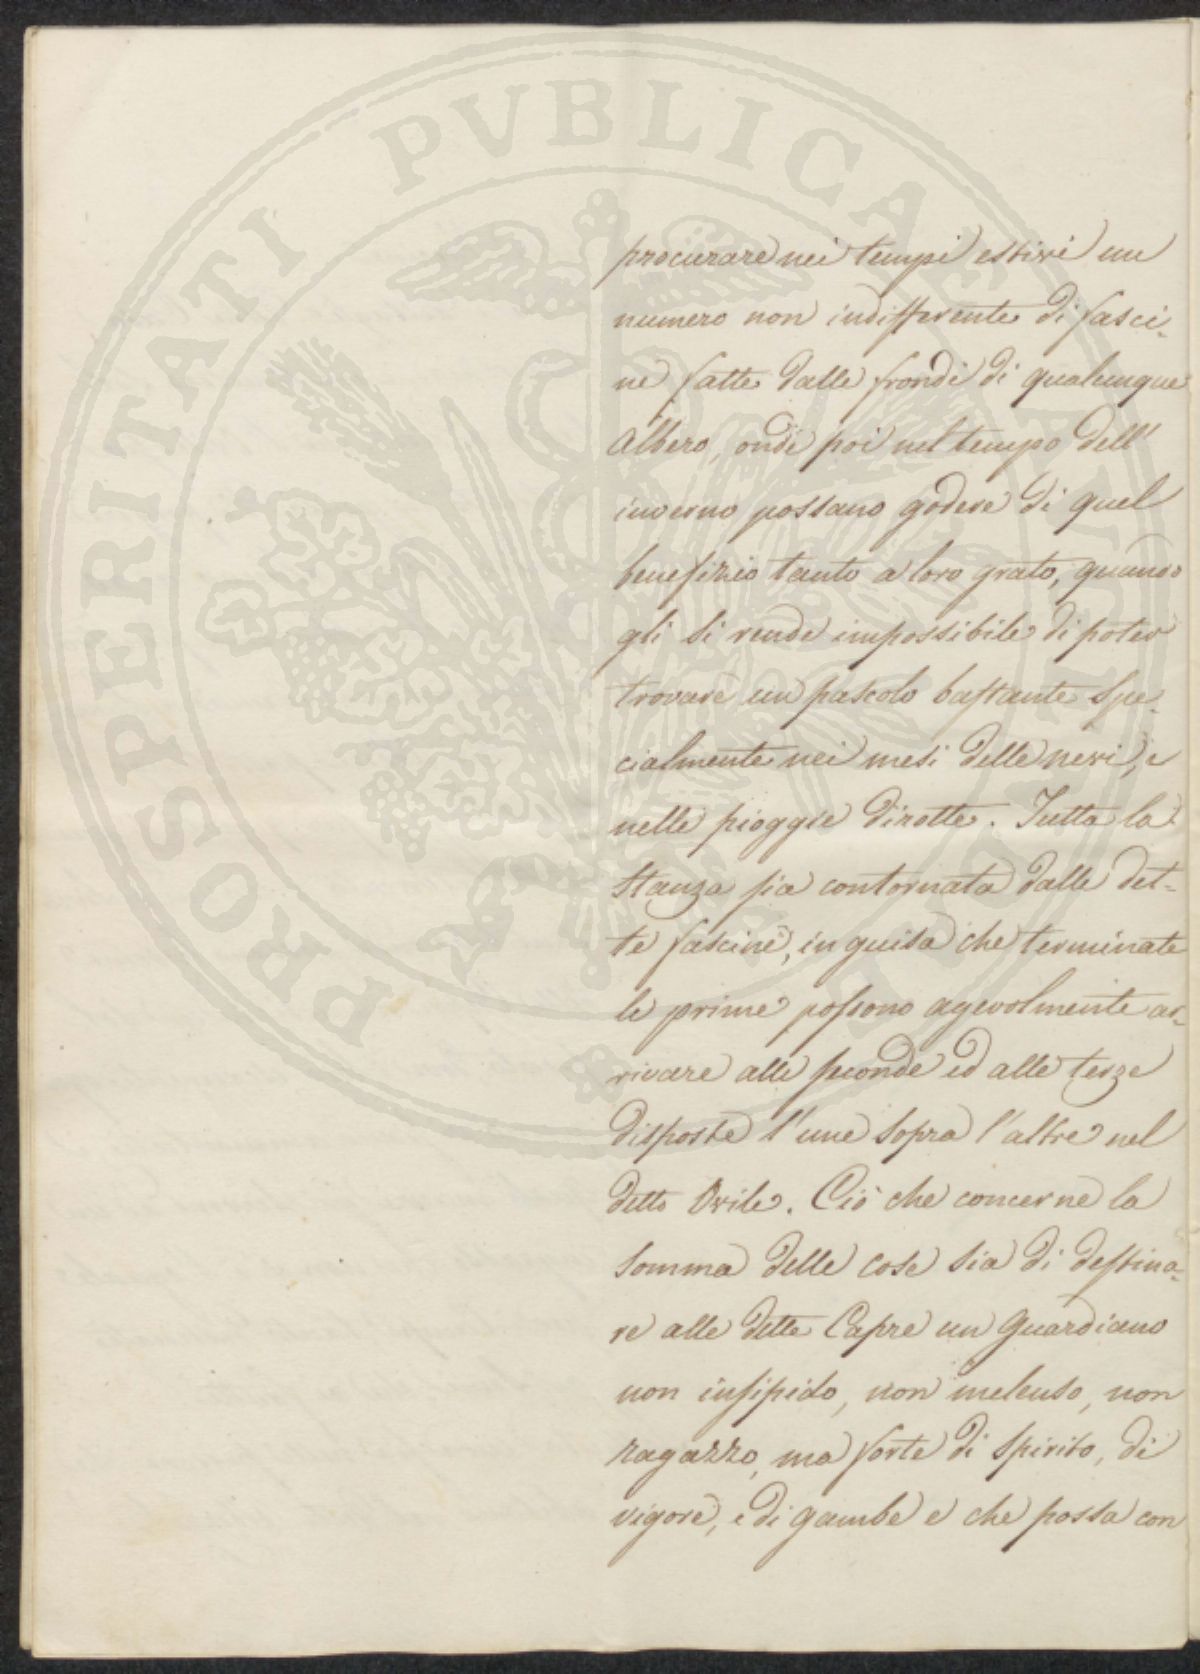 PROSPERITATI PVBLICAE AVGENDAE
procurare nei tempi estivi un
numero non indifferente di fasci-
ne fatte dalle frondi di qualunque
Albero, onde poi nel tempo dell'
inverno possano godere di quel
benefizio tanto a loro grato, quando
gli si rende impossibile di poter
trovare un pascolo bastante spe-
cialmente nei mesi delle nevi, e
nelle pioggie dirotte. Tutta la
stanza sia contornata dalle det-
te fascine, in guisa che terminate
le prime possono agevolmente ar-
rivare alle seconde ed alle terze
disposte l'une sopra l'altre nel
detto Ovile. Ciò che concerne la
somma delle cose sia di destina-
re alle dette Capre un Guardiano
non insipido, non melenso, non
ragazzo, ma forte di spirito, di
vigore, e di gambe e che possa con